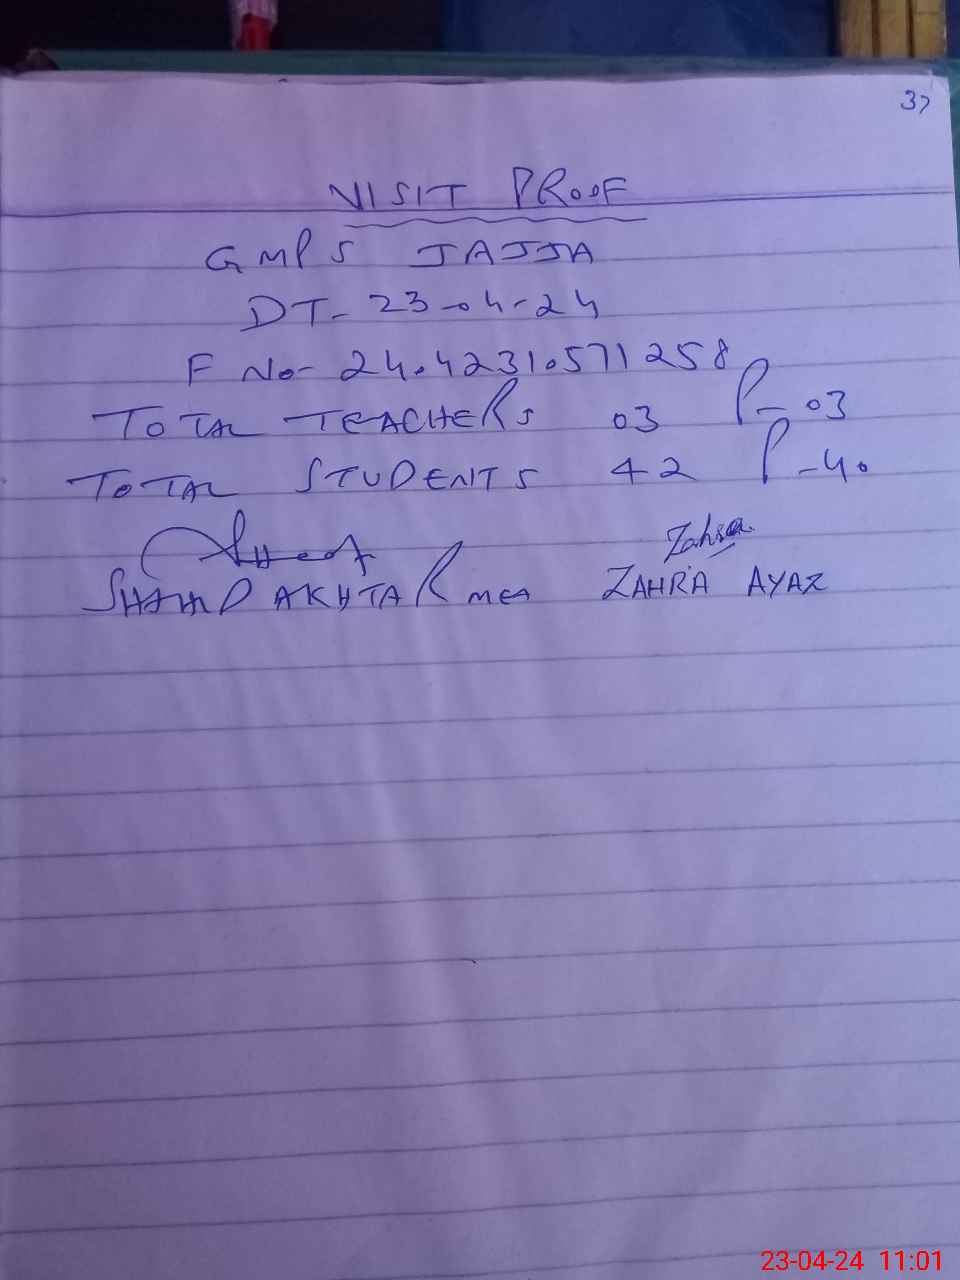 37
VISIT PROOF
GMPS JAJJA
DT- 23-04-24
F No- 24.4231.571258
TOTAL TEACHERS 03 P-03
TOTAL STUDENTS 42 P-40
Zahra
SHAHID AKHTAR MEA ZAHRA AYAZ
23-04-24 11:01